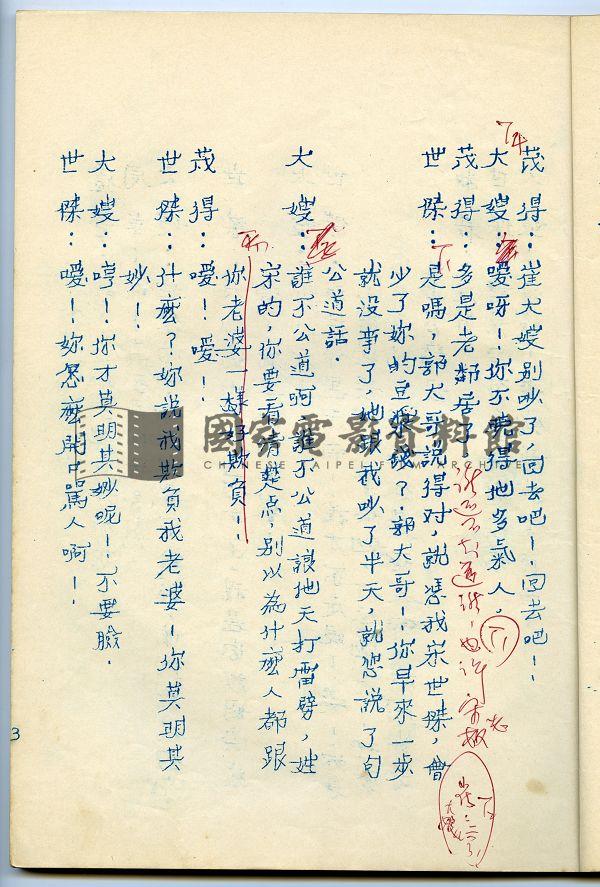 茂得：崔大嫂別吵了，回去吧！回去吧！
大嫂：噯呀！你不曉得他多氣人，
茂得：多是老鄰居了
世傑：是嗎，郭大哥說得对，就憑我宋世傑，會
少了妳的豆漿錢？郭大哥！你早來一步
就沒事了，她跟我吵了半天，就您說了句
公道話．
大嫂：誰不公道啊，誰不公道讓他天打雷劈，姓
宋的，你要看清楚点，別以為什麼人都跟
你老婆一樣好欺負！
茂得：噯！噯！
世傑：什麼？妳說我欺負我老婆！你莫明其
妙！
大嫂：哼！你才莫明其妙呢！不要臉．
世傑：噯！妳怎麼開口罵人啊！
3
國家電影資料館
CHINESE TAIPEI FILM ARCHIVE